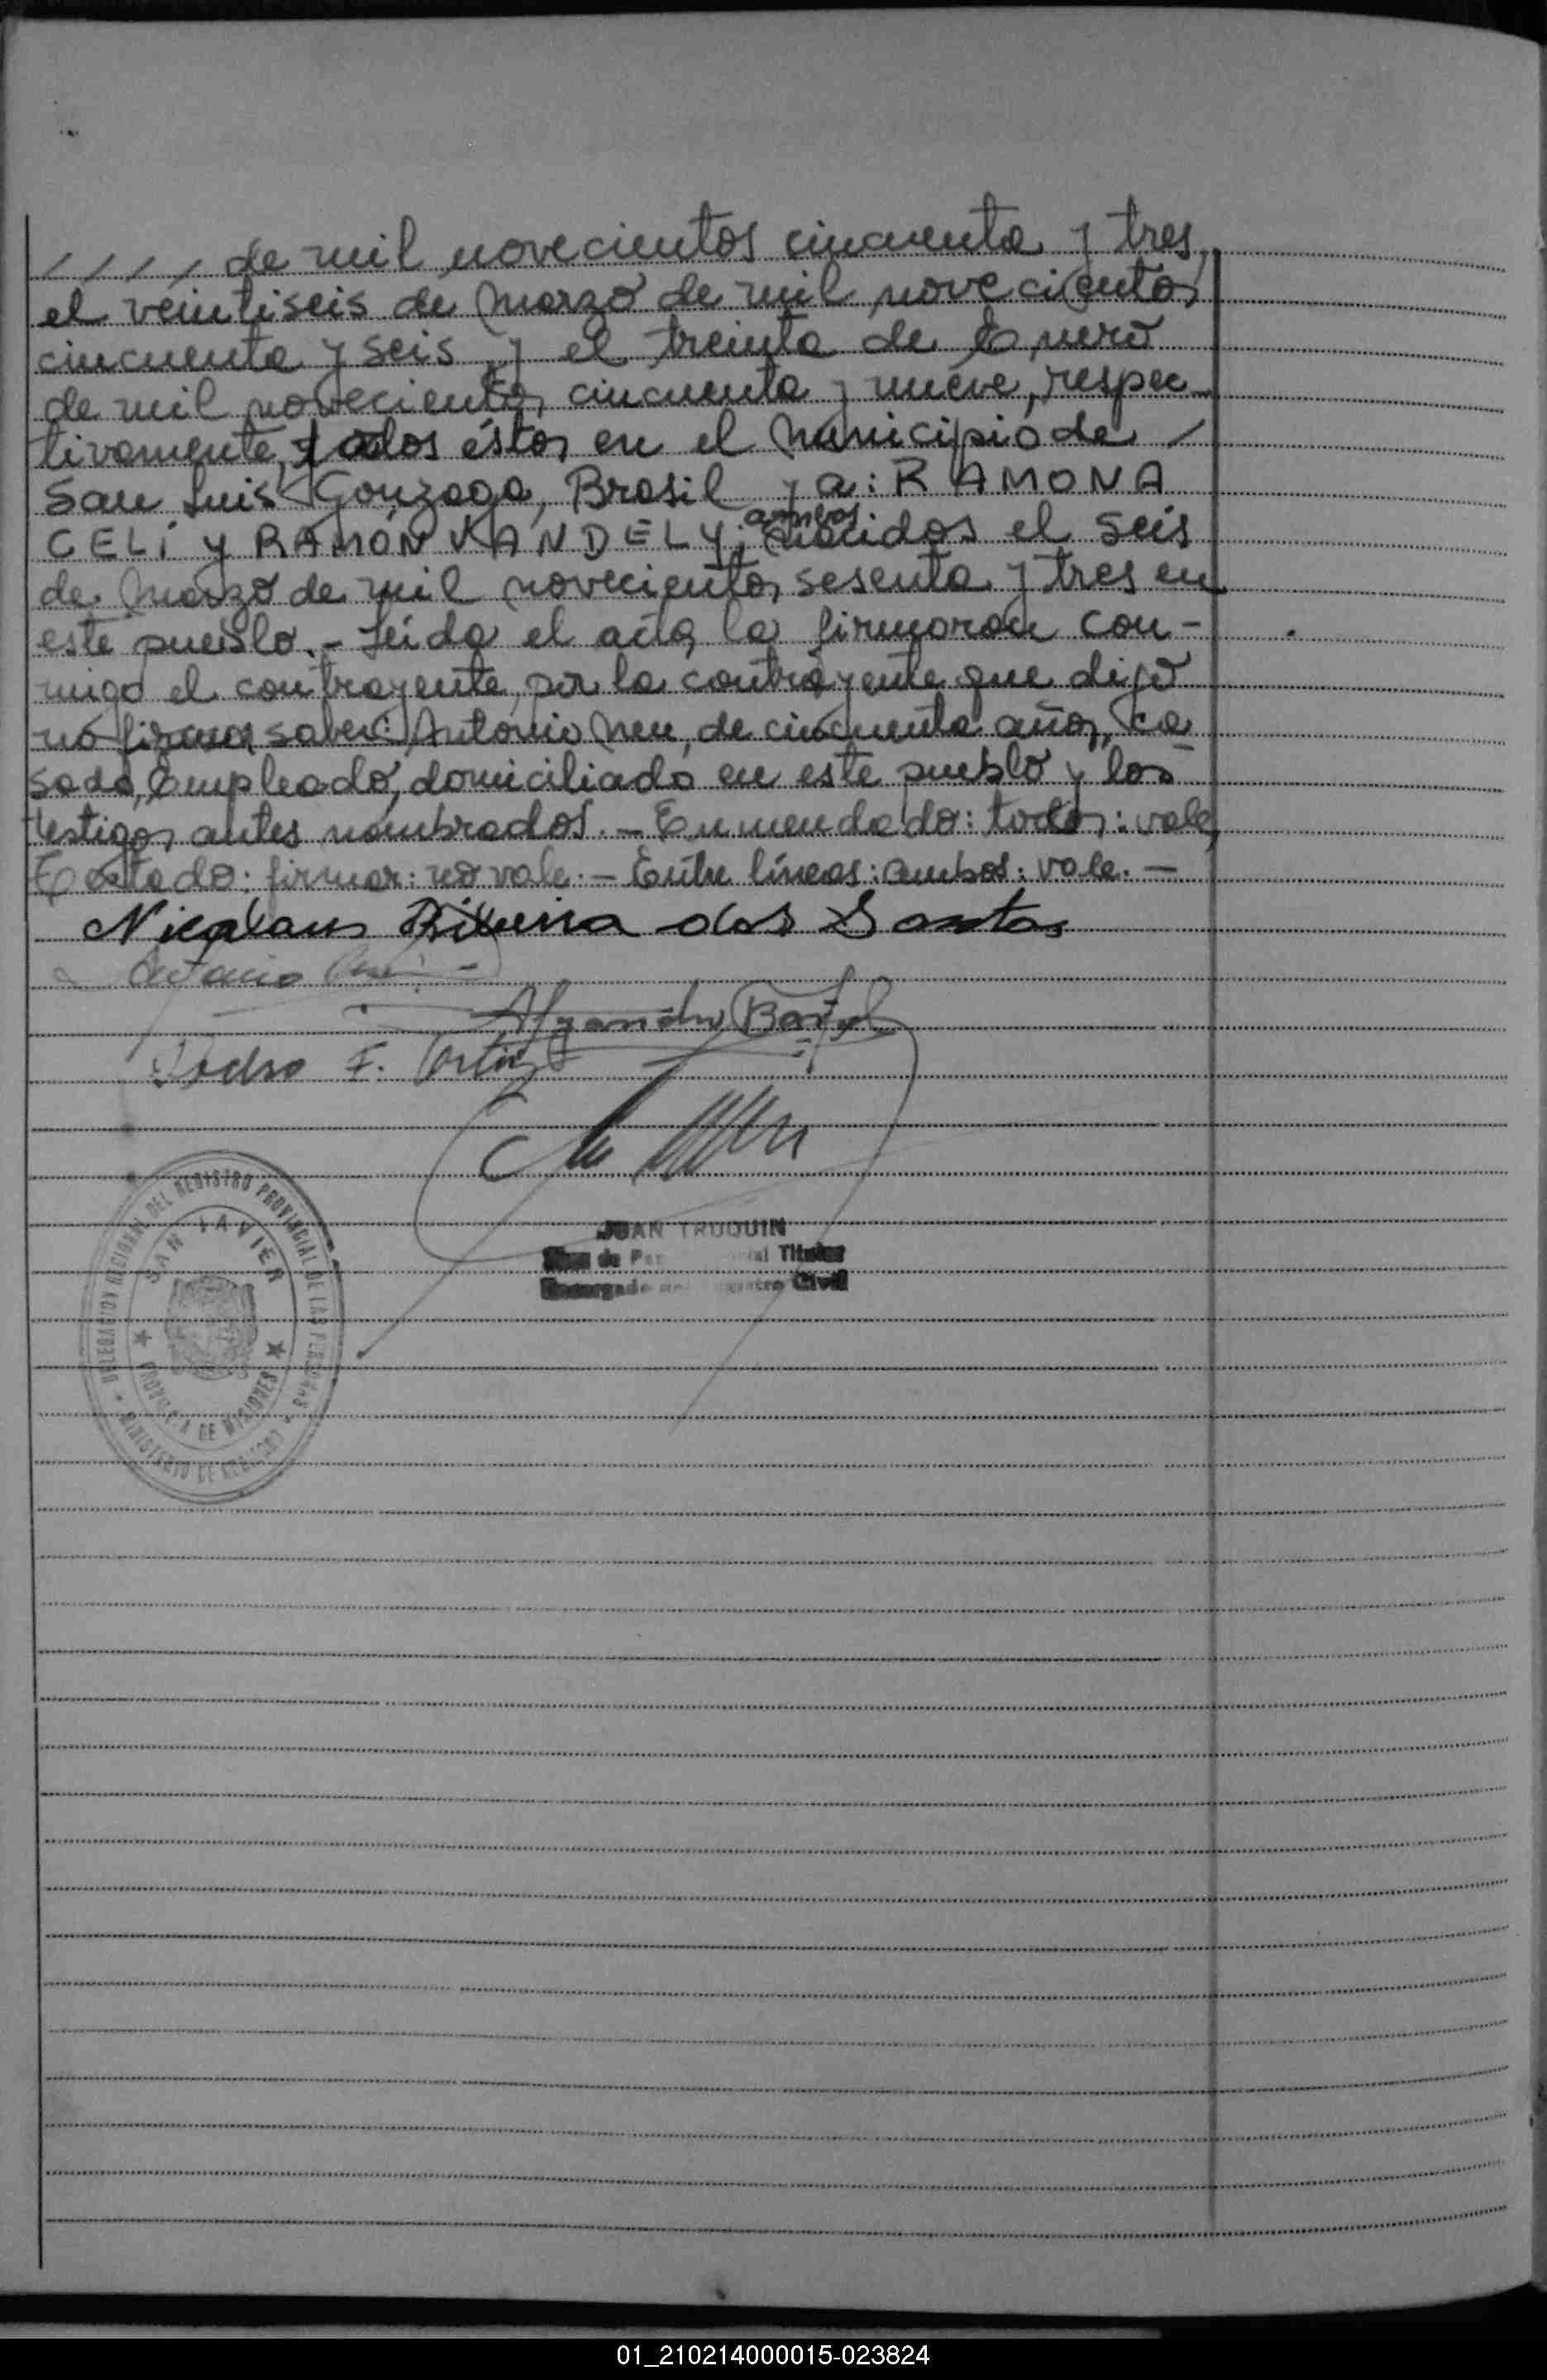 //// de mil novecientos cincuenta y tres,
el veintiseis de Marzo de mil novecientos
cincuenta y seis, y el treinta de Enero
de mil novecientos cincuenta y nueve, respec-
tivamente, todos éstos en el Municipio de /
San Luis Gonzaga, Brasil y a: RAMONA
CELÍ y RAMÓN VANDELY, ambos nacidos el seis
de Marzo de mil novecientos sesenta y tres en
este pueblo.- Leída el acta, la firmaron con-
migo el contrayente, por la contrayente que dijo
no firmar saber: Antonio Neu, de cincuenta años, ca
sado, Empleado, domiciliado en este pueblo y los
testigos antes nombrados.- Enmendado: todos: vale,
Testado: firmar: no vale.- Entre líneas: ambos: vale.-
Nicolaus Ribeira dos Santos
Antonio
Pedro F. Ortiz
JUAN TRUQUIN
Titular
Encargado Registro Civil
DELEGACION REGIONAL DEL REGISTRO PROVINCIAL DE LAS PERSONAS
SAN JAVIER
PROVINCIA DE MISIONES
MINISTERIO DE GOBIERNO
01_210214000015-023824